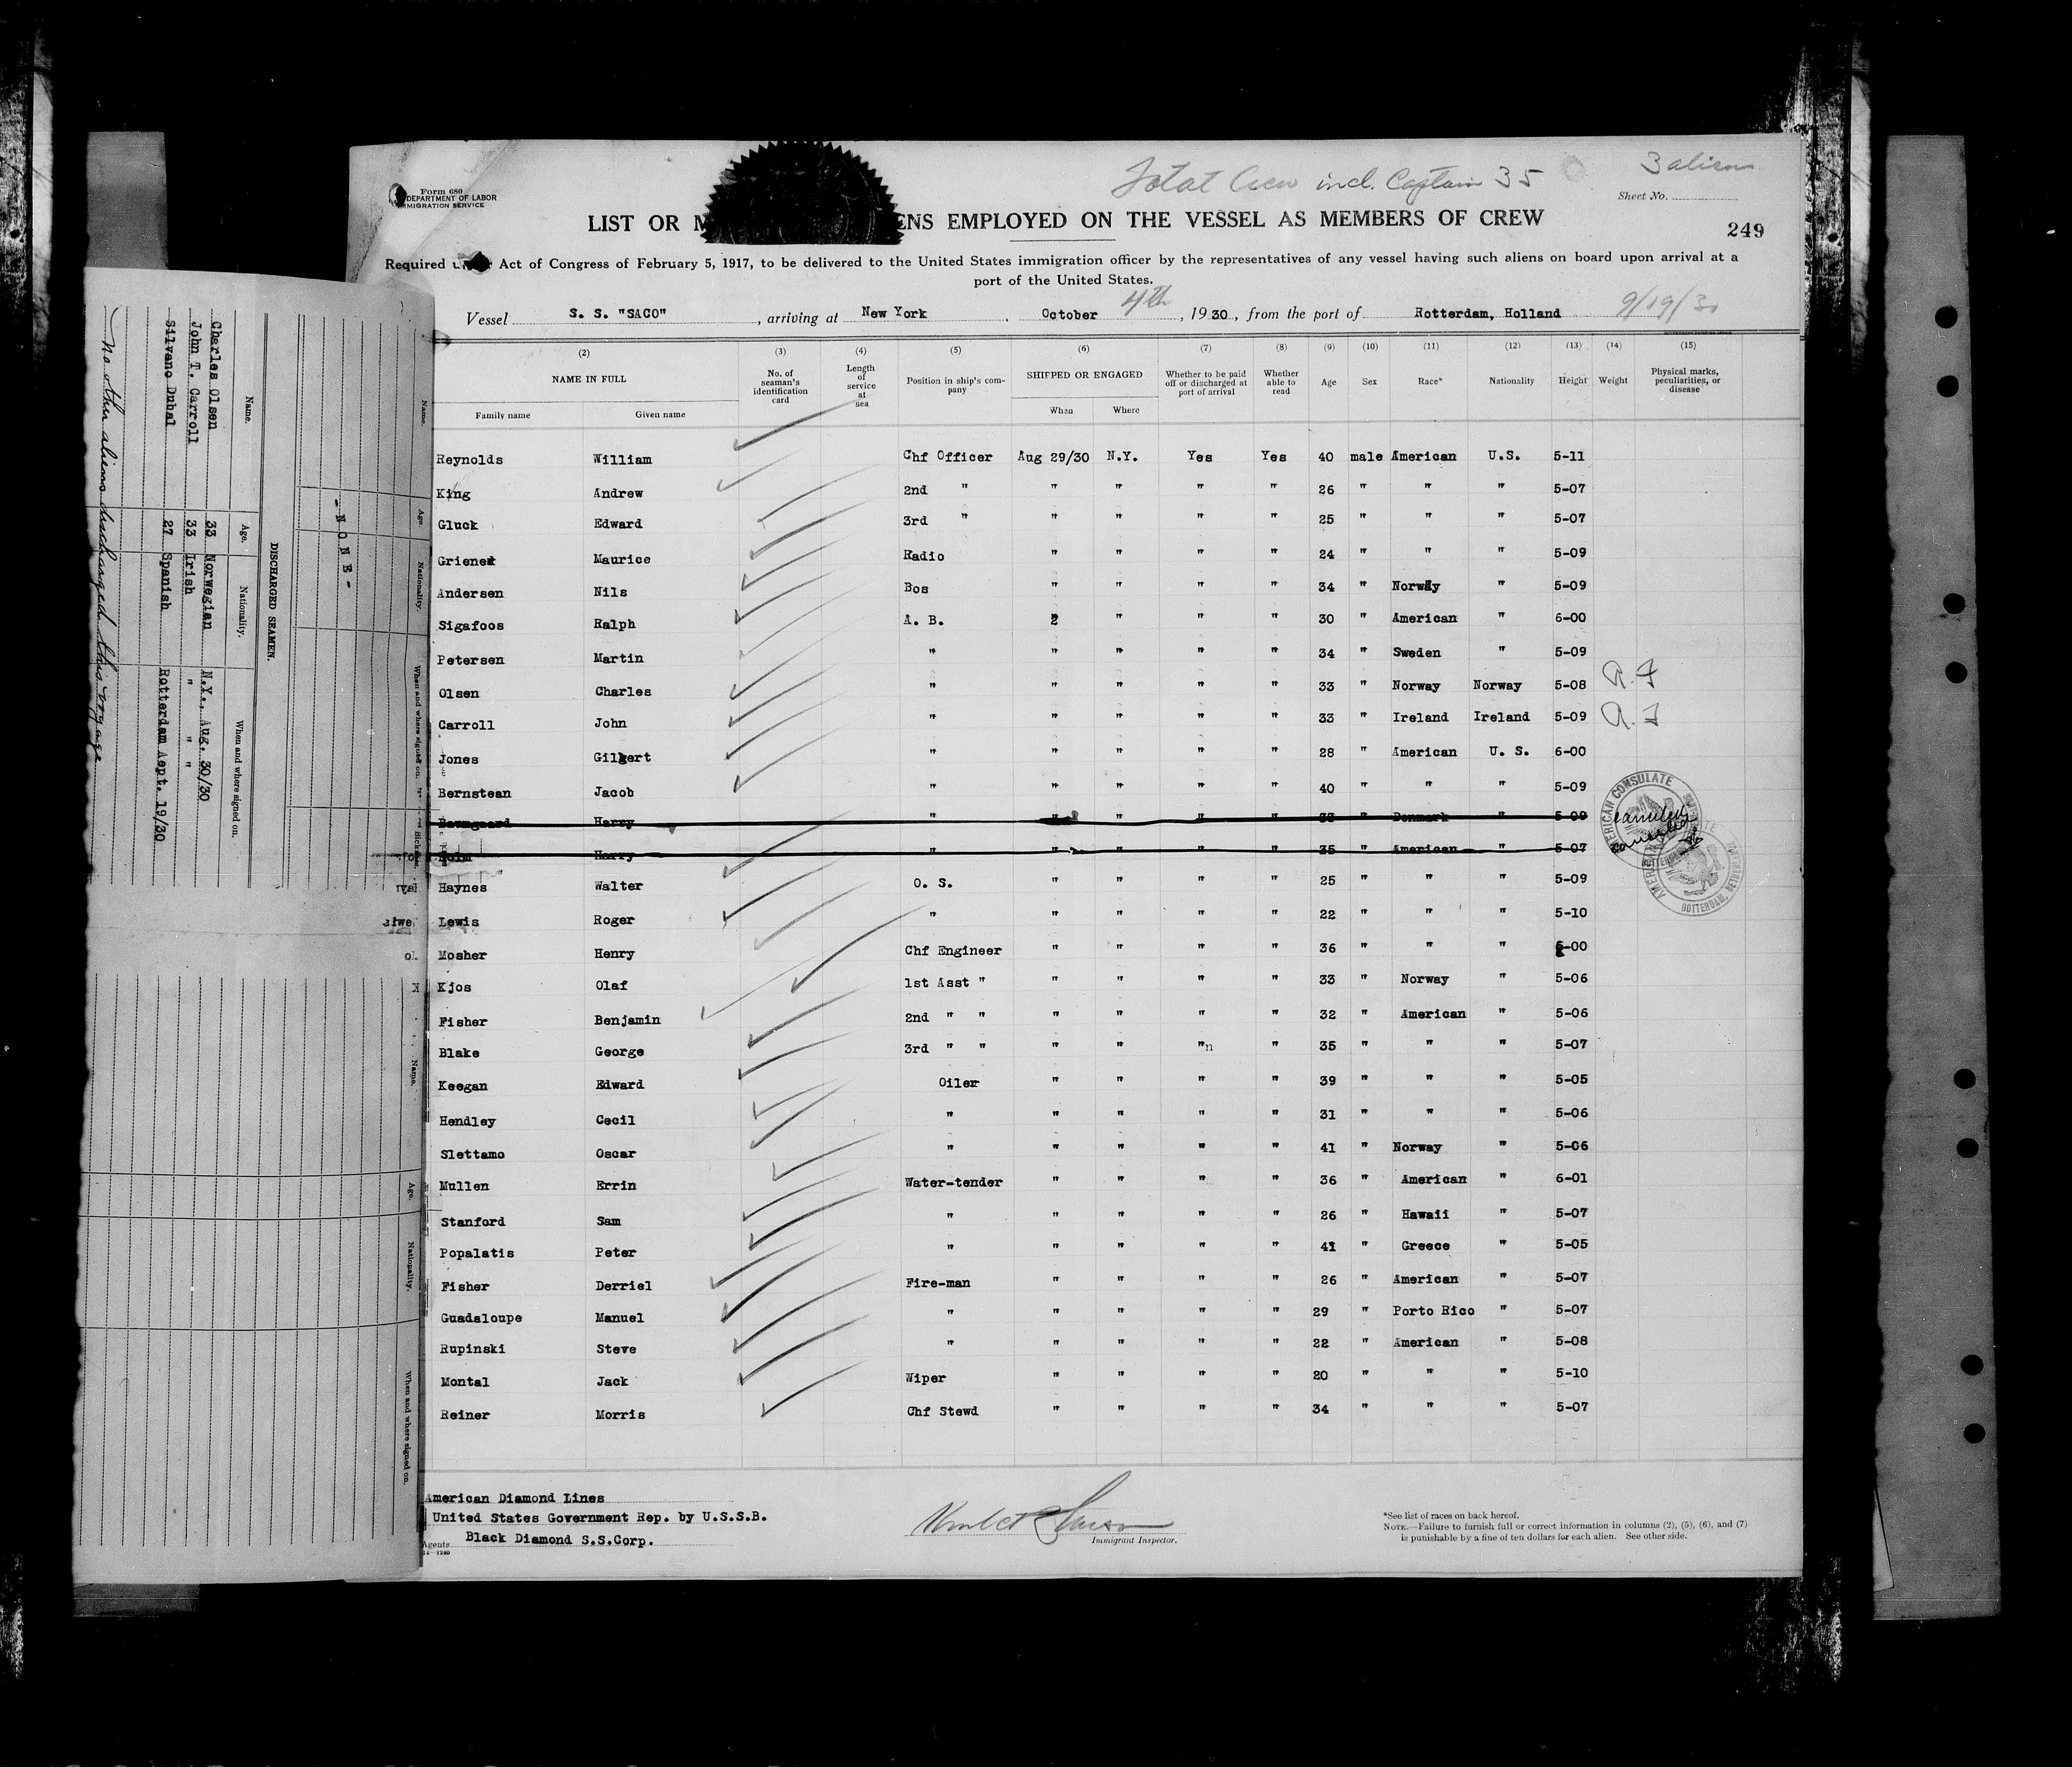 Total Crew incl. Captain 35
3 aliens
Form 680
DEPARTMENT OF LABOR
IMMIGRATION SERVICE
Sheet No.
LIST OR M ENS EMPLOYED ON THE VESSEL AS MEMBERS OF CREW
249
Required Act of Congress of February 5, 1917, to be delivered to the United States immigration officer by the representatives of any vessel having such aliens on board upon arrival at a
port of the United States.
Vessel S. S. "SACO", arriving at New York, October 4th, 1930, from the port of Rotterdam, Holland 9/19/30
(2) (3) (4) (5) (6) (7) (8) (9) (10) (11) (12) (13) (14) (15)
NAME IN FULL No. of seaman's identification card Length of service at sea Position in ship's company SHIPPED OR ENGAGED Whether to be paid off or discharged at port of arrival Whether able to read Age Sex Race* Nationality Height Weight Physical marks, peculiarities, or disease
Family name Given name When Where
Reynolds William Chf Officer Aug 29/30 N.Y. Yes Yes 40 male American U.S. 5-11
King Andrew 2nd " " " " " 26 " " " 5-07
Gluck Edward 3rd " " " " " 25 " " " 5-07
Griener Maurice Radio " " " " 24 " " " 5-09
Andersen Nils Bos " " " " 34 " Norway " 5-09
Sigafoos Ralph A. B. " " " 30 " American " 6-00
Petersen Martin " " " " " 34 " Sweden " 5-09
Olsen Charles " " " " " 33 " Norway Norway 5-08
Carroll John " " " " " 33 " Ireland Ireland 5-09
Jones Gilbert " " " " " 28 " American U. S. 6-00
Bernstean Jacob " " " " " 40 " " " 5-09
Baumgaard Harry " " " " " 33 " Denmark " 5-09
Harry " " " " " 35 " American " 5-07
Haynes Walter O. S. " " " " 25 " " " 5-09
Lewis Roger " " " " " 22 " " " 5-10
Mosher Henry Chf Engineer " " " " 36 " " " 6-00
Kjos Olaf 1st Asst " " " " " 33 " Norway " 5-06
Fisher Benjamin 2nd " " " " " " 32 " American " 5-06
Blake George 3rd " " " " "n " 35 " " " 5-07
Keegan Edward Oiler " " " " 39 " " " 5-05
Hendley Cecil " " " " " 31 " " " 5-06
Slettamo Oscar " " " " " 41 " Norway " 5-06
Mullen Errin Water-tender " " " " 36 " American " 6-01
Stanford Sam " " " " " 26 " Hawaii " 5-07
Popalatis Peter " " " " " 41 " Greece " 5-05
Fisher Derriel Fire-man " " " " 26 " American " 5-07
Guadaloupe Manuel " " " " " 29 " Porto Rico " 5-07
Rupinski Steve " " " " " 22 " American " 5-08
Montal Jack Wiper " " " " 20 " " " 5-10
Reiner Morris Chf Stewd " " " " 34 " " " 5-07
AMERICAN CONSULATE
canceled
canceled
ROTTERDAM, NETHERLANDS
American Diamond Lines
United States Government Rep. by U.S.S.B.
Black Diamond S.S.Corp.
Agents
Immigrant Inspector.
*See list of races on back hereof.
NOTE.—Failure to furnish full or correct information in columns (2), (5), (6), and (7)
is punishable by a fine of ten dollars for each alien. See other side.
Name. Age. Nationality. When and where signed on.
-NONE-
DISCHARGED SEAMEN.
Name. Age. Nationality. When and where signed on.
Charles Olsen 33 Norwegian N.Y., Aug. 30/30
John T. Carroll 33 Irish " "
Silvano Dubal 27 Spanish Rotterdam Aept. 19/30
No other aliens discharged this voyage
Name. Age. Nationality. When and where signed on.